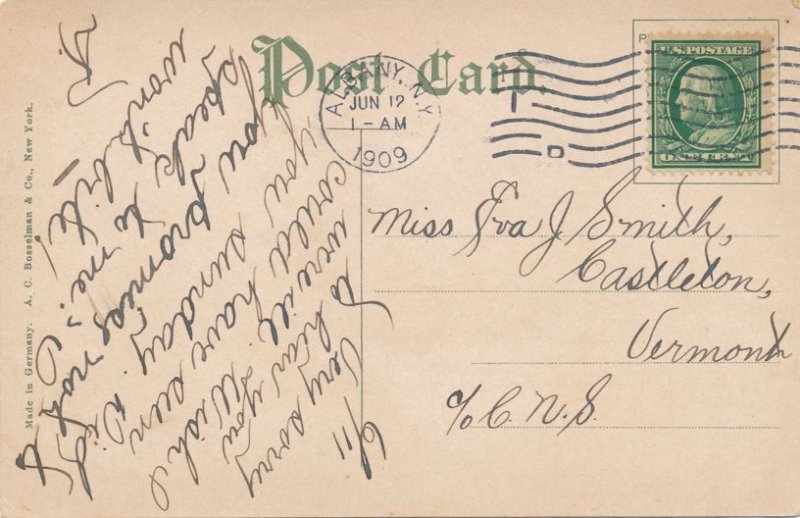 Post Card.
ALBANY, N.Y.
JUN 12
1-AM
1909
U.S. POSTAGE
ONE CENT
Made in Germany. A. C. Bosselman & Co., New York.
6/11
Very sorry
to hear you
were ill. Wish I
could have seen
you sunday. Did
you promies not to
speak to me? I
won't bite!
Miss Eva J. Smith,
Castleton,
Vermont
c/o C. N. S.